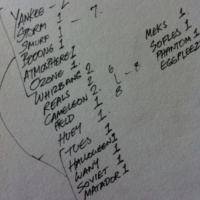 YANKEE - 2
STORM - 1 - 7.
SMURF 1
BOOONG 1
ATMOSPHERE 1
OZONE 1
WHIRBANS 2. 6 - 8
REALS 2. L
CAMELEON 2. 8
FIELD 1
HUEY 1
TUES 1
HALLOWEEN 1
WANY 1
SOVIET 1
MATADOR 1
MEKS 1.
SOFLES 1.
PHANTOM 1
EGGPLEEZ 1